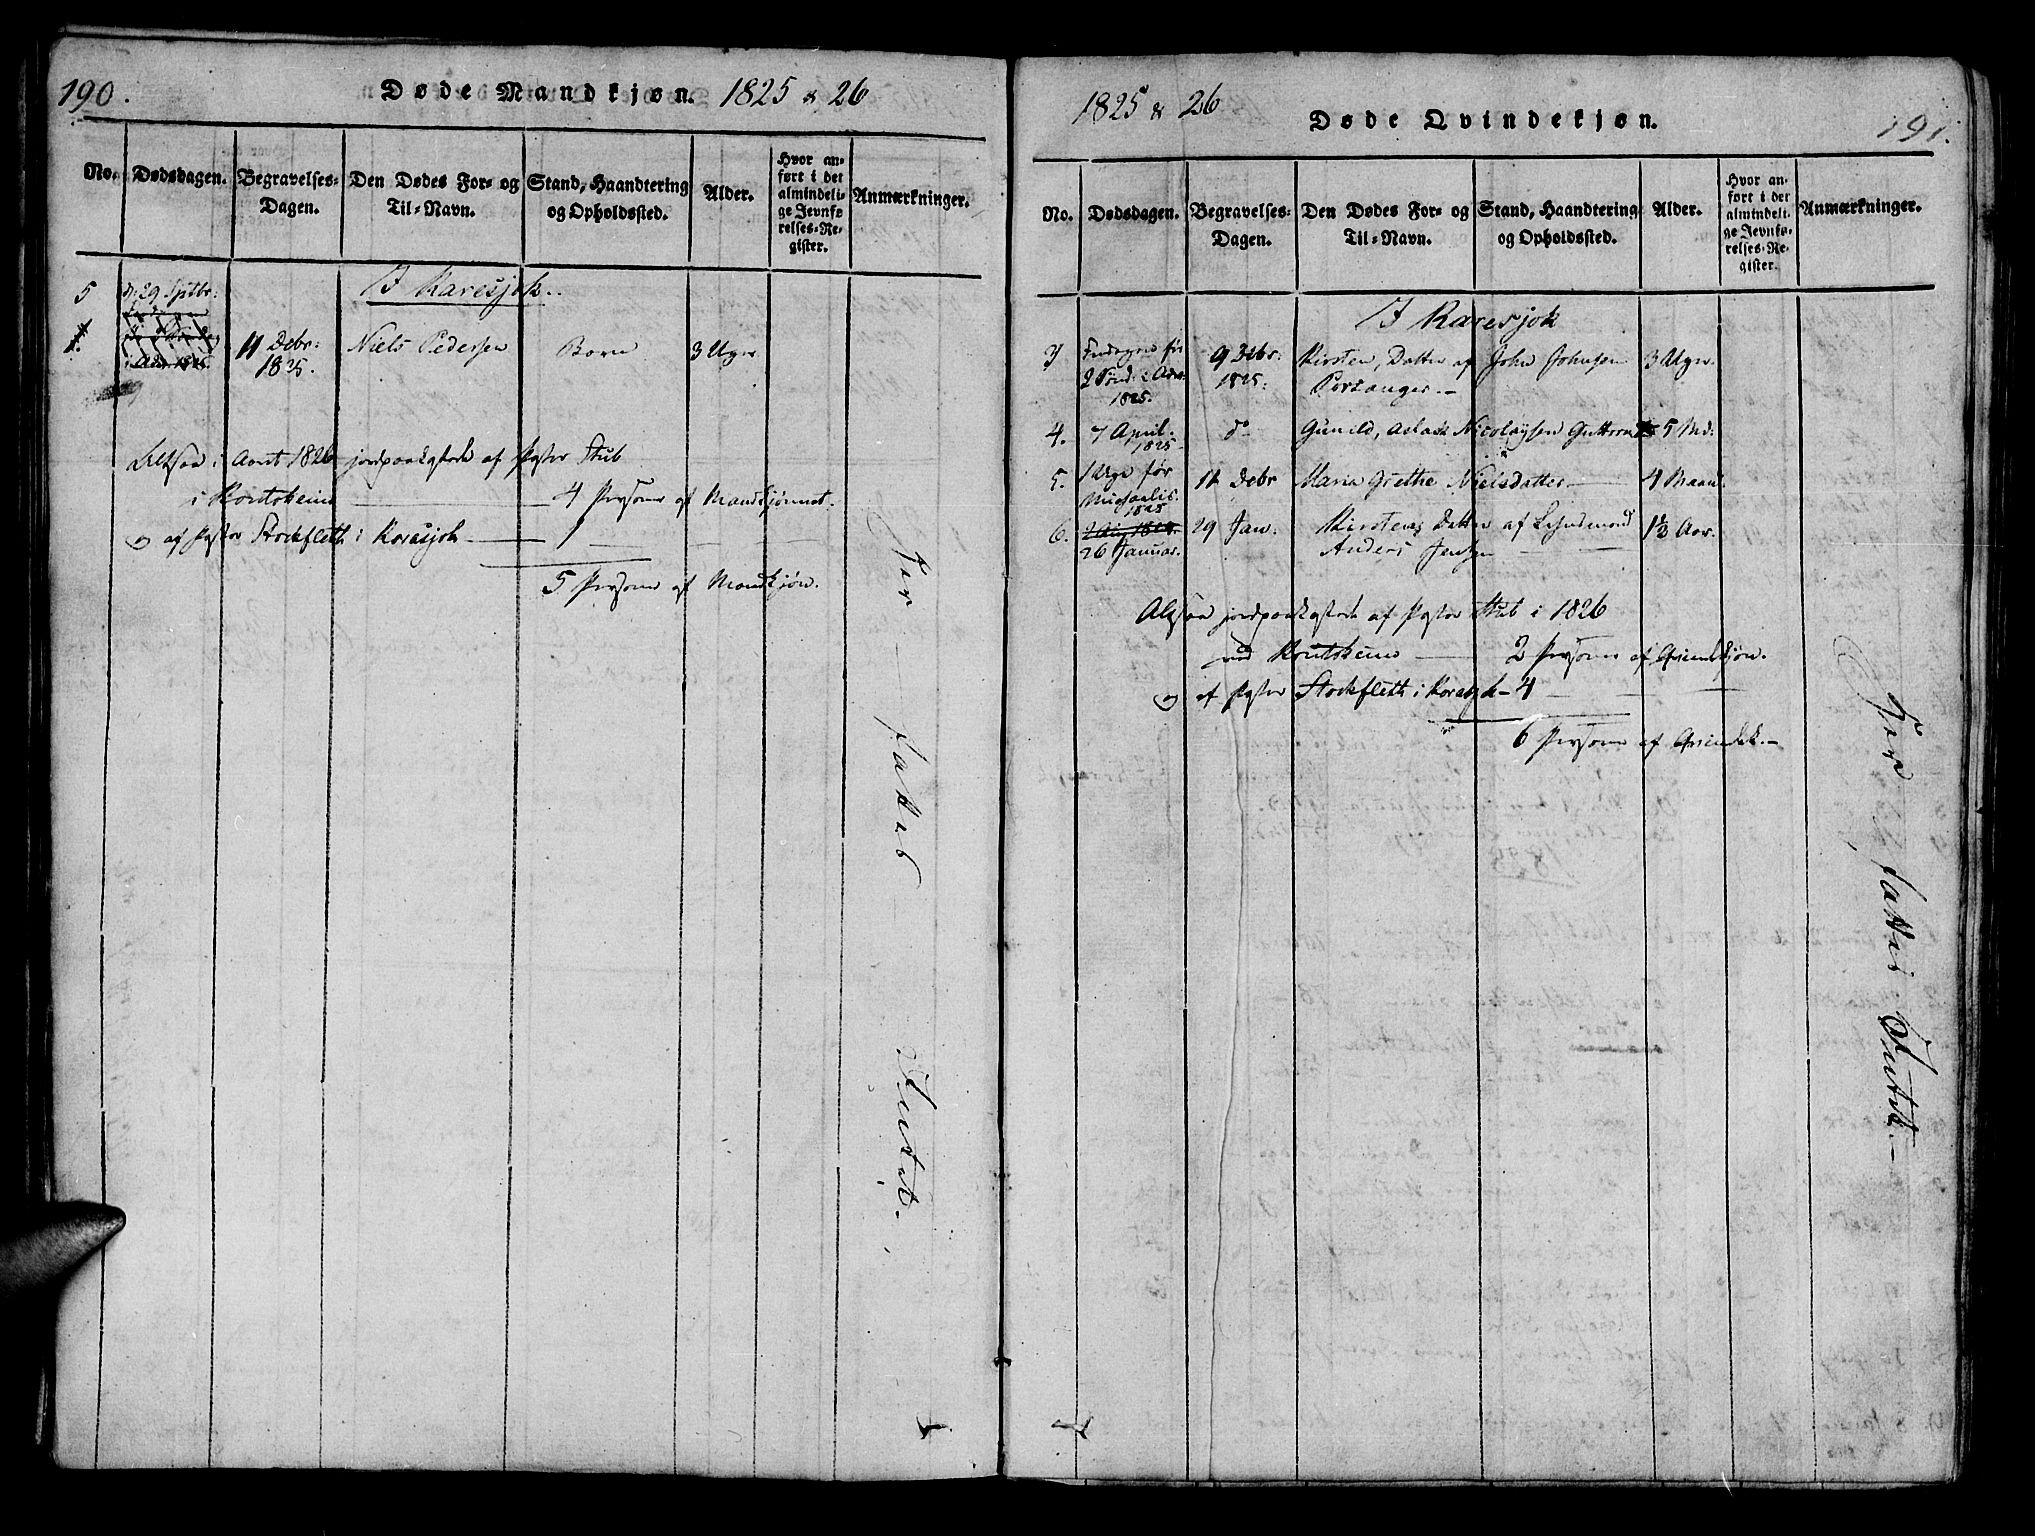 190.
Døde Mandkjøn. 1825 & 26
No.
Dødsdagen.
Begravelses-
Dagen.
Den Dødes For- og
Til-Navn.
Stand, Haandtering
og Opholdssted.
Alder.
Hvor an-
ført i det
almindeli-
ge Jevnfø-
relses-Re-
gister.
Anmærkninger.
I Karesjok.
5 29 Sptbr:
1. 11 Debr: Niels Pedersen Barn 3 Uger
1825.
Altsaa i Aaret 1826 jordpaakastede af Pastor Stub
i Koutokeino 4 Personer af Mandkjønnet.
og af Pastor Stockfleth i Korasjok 1
5 Personer af Mandkjøn.
Her fattes Intet.
1825 & 26
Døde Qvindekjøn.
191.
No.
Dødsdagen.
Begravelses-
Dagen.
Den Dødes For- og
Til-Navn.
Stand, Haandtering
og Opholdssted.
Alder.
Hvor an-
ført i det
almindeli-
ge Jevnfø-
relses-Re-
gister.
Anmærkninger.
I Karesjok
3 Fredagen før 9 Debr: Kirsten, Datter af John Johnsen 3 Uger.
2 Sønd: i Adv: 1825: Porsanger.-
1825.
4. 7 April. do Gunild, Aslach Nicolaysen 5 Md:
1825
5. 1 Uge før 11 Debr Maria Grethe Nielsdatter 4 Maan:
Michaelis.
1825
6. 29 Jan: Kirsten, Datter af 1½ Aar.
26 Januar. Anders Jensen
Altsaa jordpaakastede af Pastor Stub i 1826
ved Koutokeino 2 Personer af Qvindekjøn.
og af Pastor Stockfleth i Korasjok - 4
6 Personer af Qvindek.-
Her fattes Intet.-